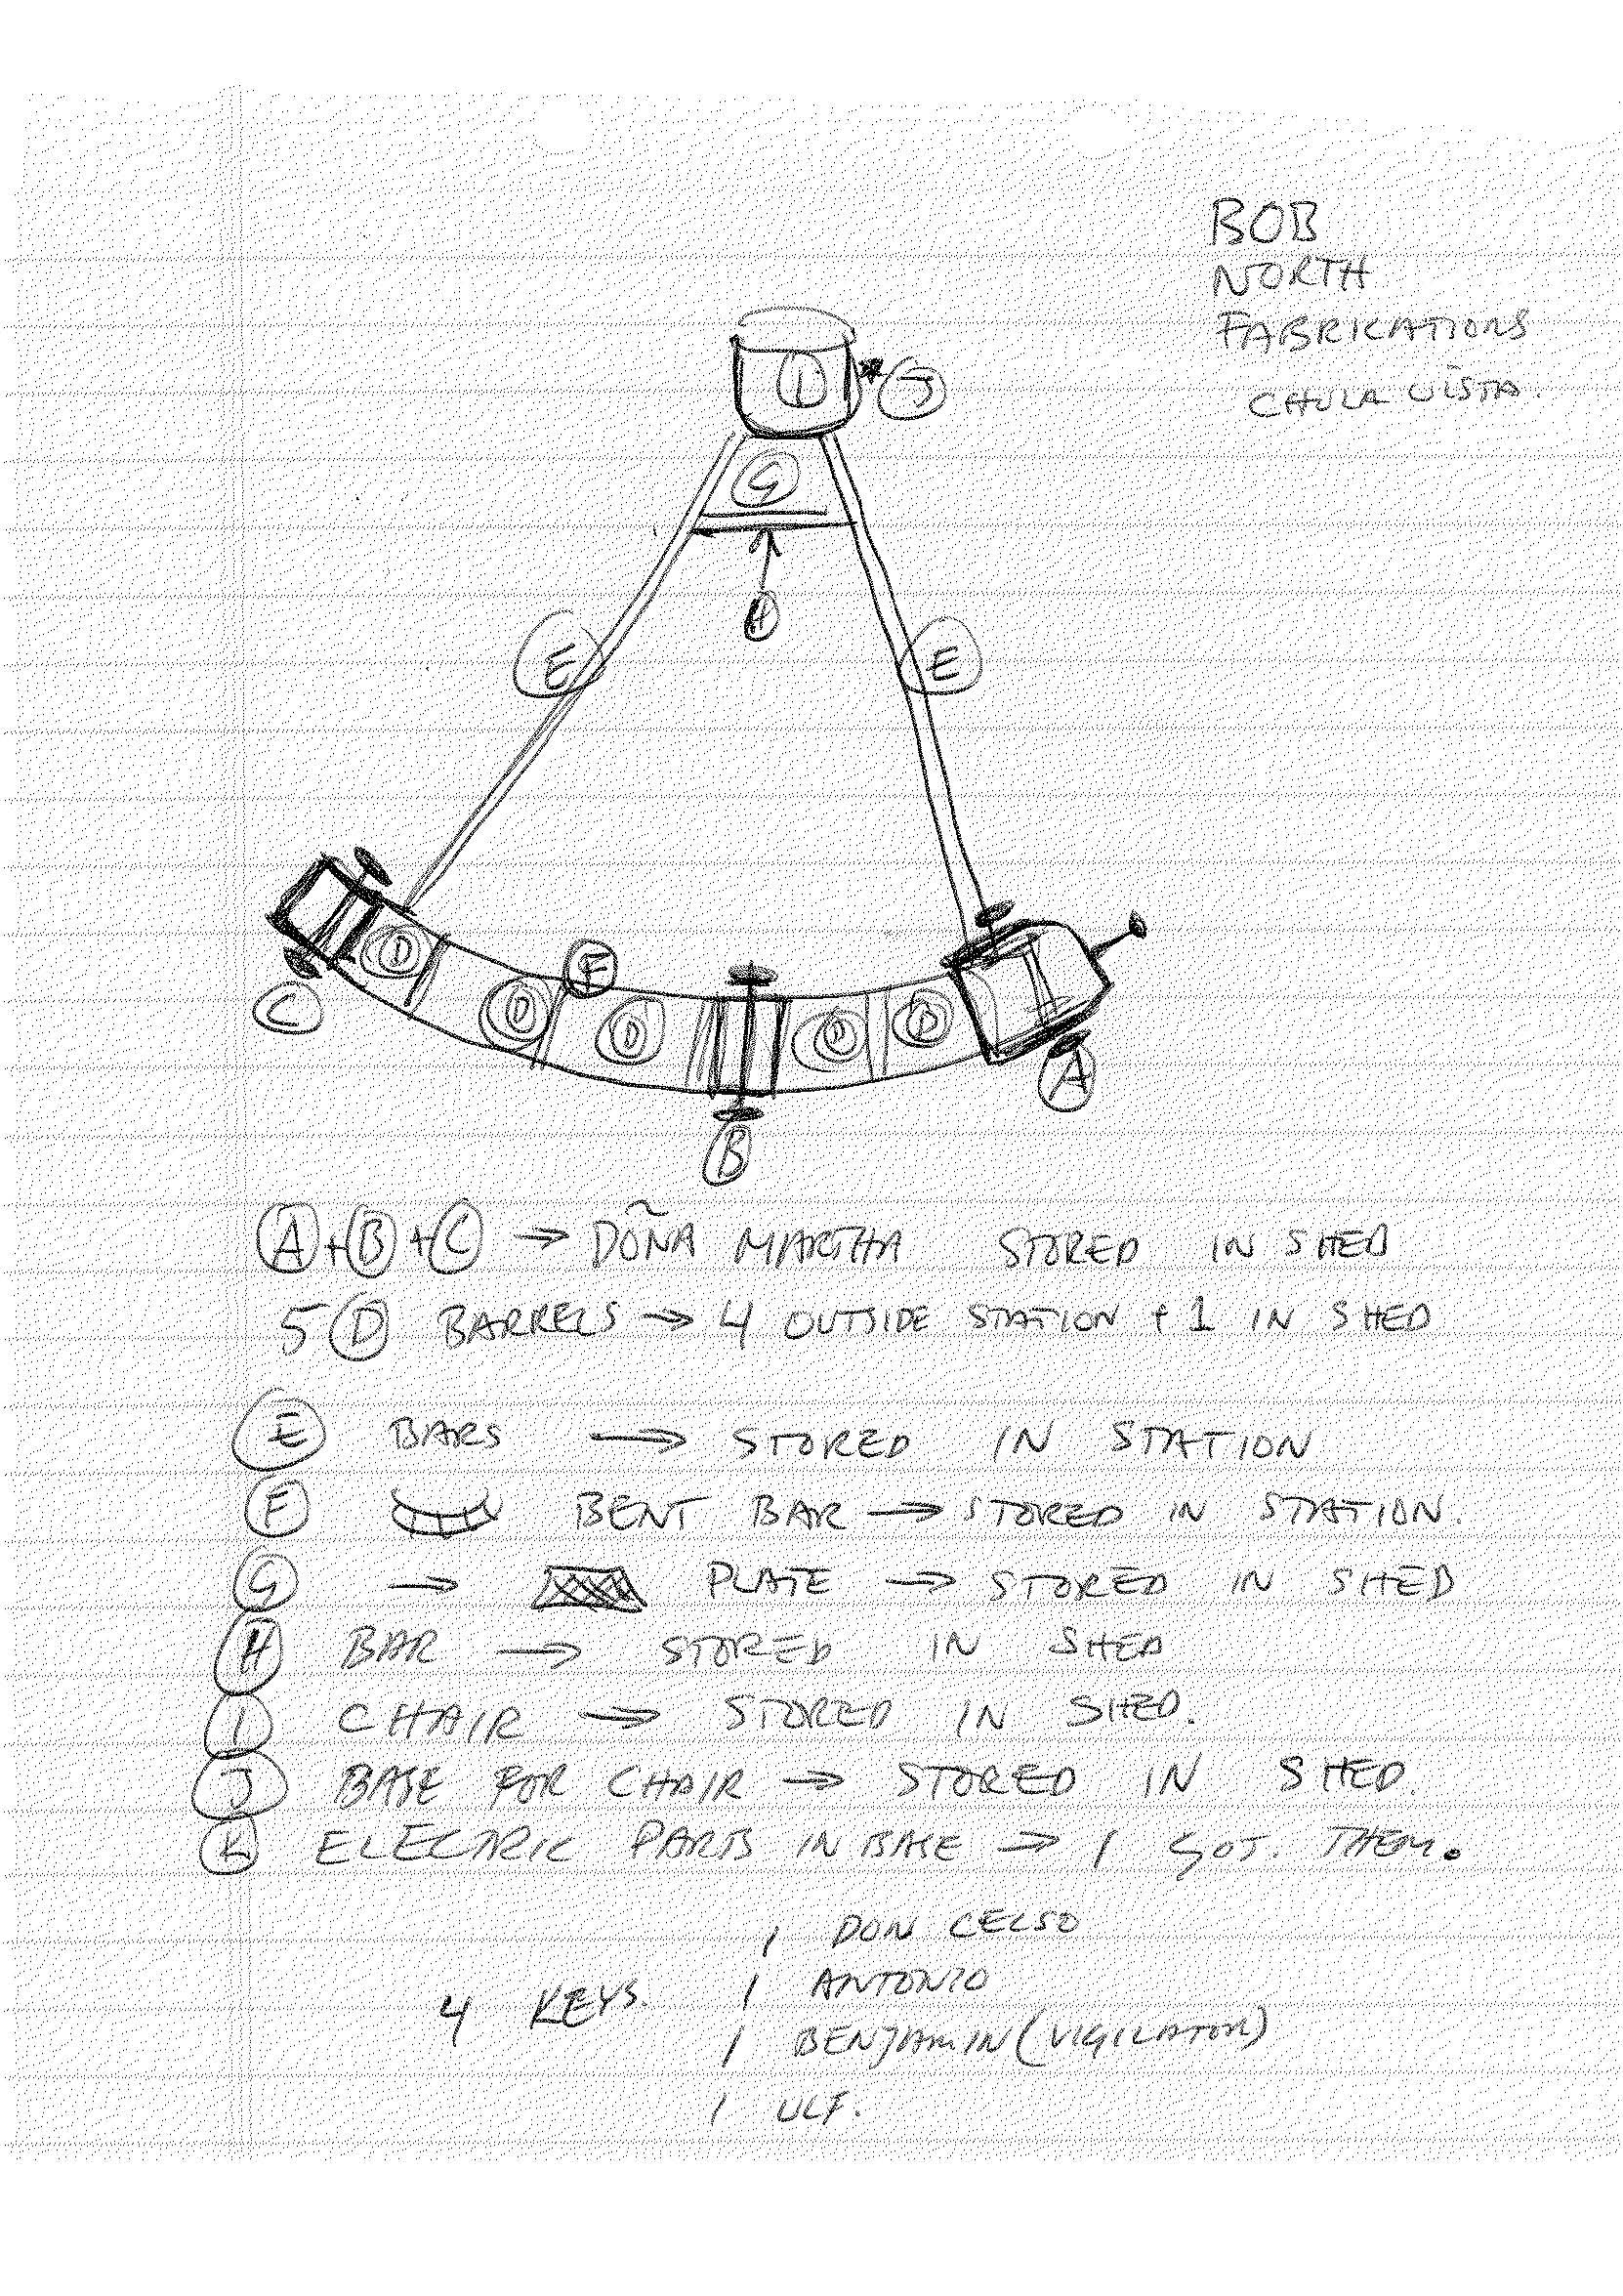 BOB
NORTH
FABRICATIONS
CHULA VISTA.
I
J
G
H
E E
D F
D D D D
C
A
B
A + B + C → DOÑA MARTHA STORED IN SHED
5 D BARRELS → 4 OUTSIDE STATION + 1 IN SHED
E BARS → STORED IN STATION
F BENT BAR → STORED IN STATION.
G → PLATE → STORED IN SHED
H BAR → STORED IN SHED
I CHAIR → STORED IN SHED.
J BASE FOR CHAIR → STORED IN SHED.
K ELECTRIC PARTS IN BASE → I GOT. THEM.
1 DON CELSO
4 KEYS. 1 ANTONIO
1 BENJAMIN (VIGILATOR)
1 ULF.